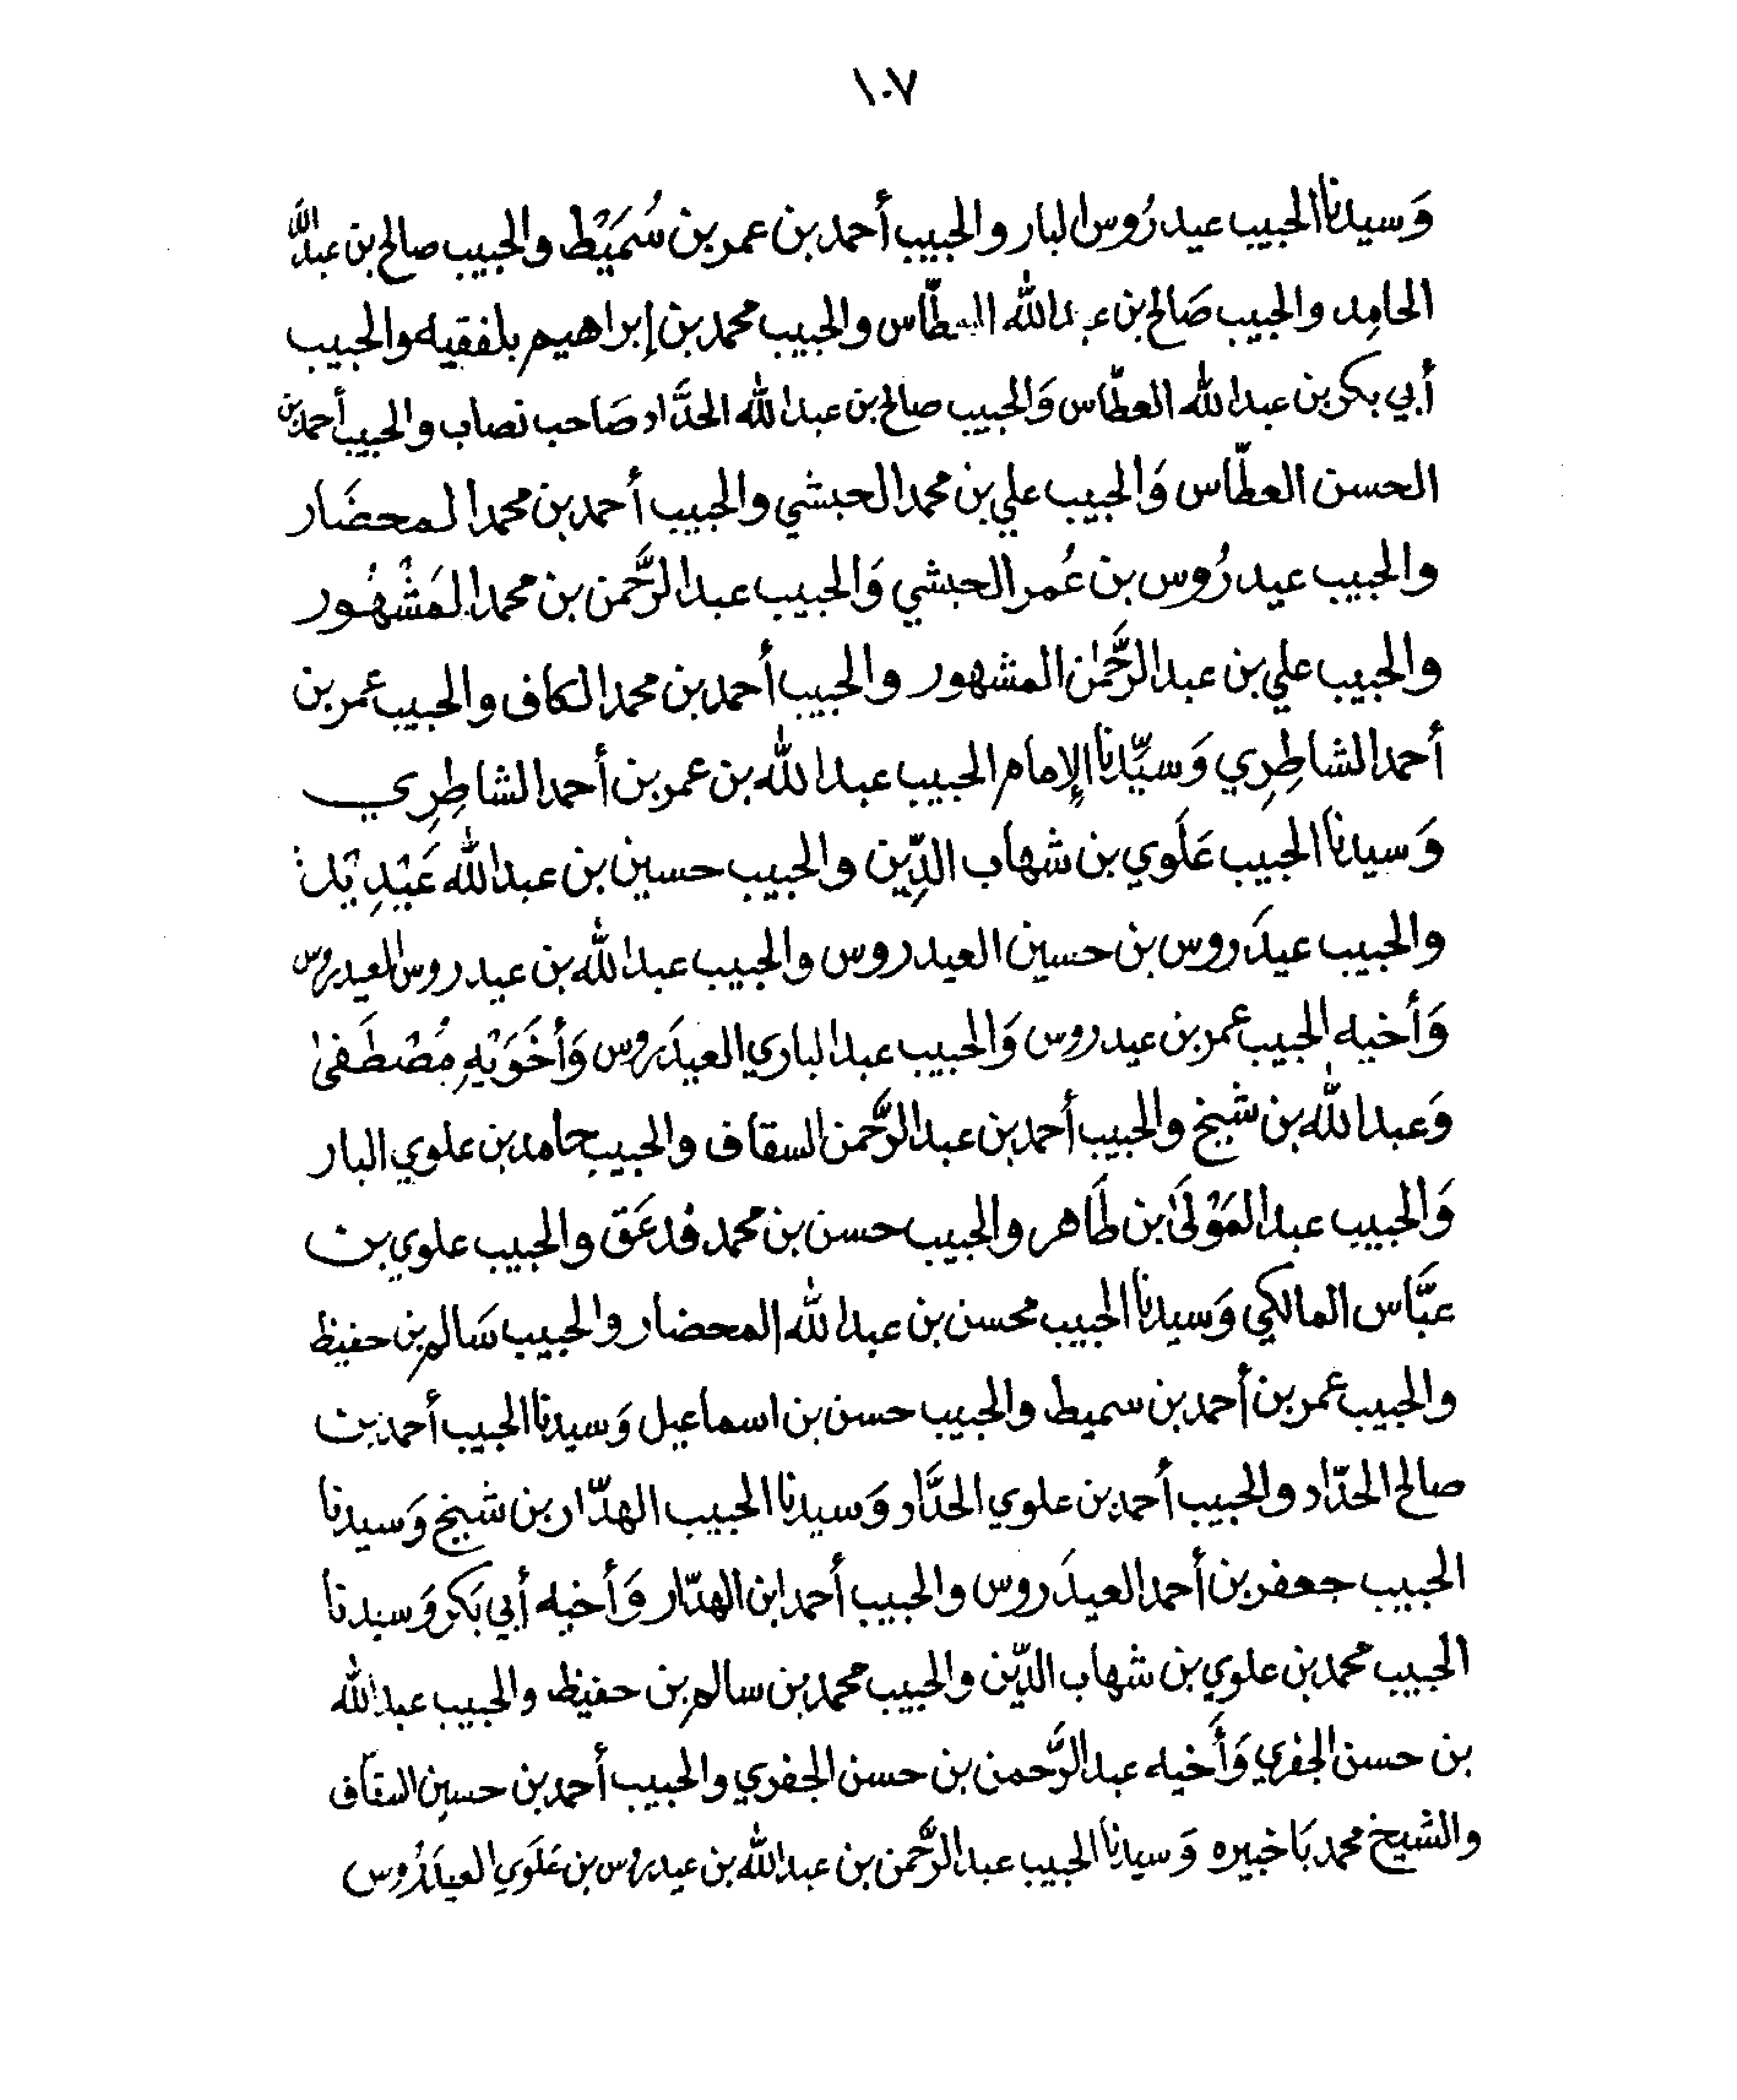 ١٠٧
وَسيدنا الحبيب عيدرُوس البار والحبيب أحمد بن عمر بن سُمَيْط والحبيب صالح بن عبدالله
الحامِد والحبيب صَالح بن عبدالله العطّاس والحبيب محمد بن إبراهيم بلفقيه والحبيب
أبي بكر بن عبدالله العطّاس وَالحبيب صالح بن عبدالله الحدَّاد صَاحب نصاب والحبيب أحمد بن
الحسن العطّاس وَالحبيب علي بن محمد الحبشي والحبيب أحمد بن محمد المحضَار
والحبيب عيدرُوس بن عُمر الحبشي وَالحبيب عبدالرَّحمن بن محمد المَشْهُور
والحبيب علي بن عبدالرَّحمٰن المشهور والحبيب أحمد بن محمد الكاف والحبيب عمر بن
أحمد الشاطِرِي وَسيِّدنا الإمام الحبيب عبدالله بن عمر بن أحمد الشاطِرِي
وَسيدنا الحبيب عَلَوي بن شهاب الدِّين والحبيب حسين بن عبدالله عَيْدِيْد
والحبيب عيدَروس بن حسين العيدروس والحبيب عبدالله بن عيدروس العيدروس
وَأخيه الحبيب عمر بن عيدروس وَالحبيب عبدالباري العيدَروس وَأخَوَيْهِ مُصْطَفىٰ
وَعبدالله بن شيخ والحبيب أحمد بن عبدالرَّحمن السقاف والحبيب حامد بن علوي البار
وَالحبيب عبدالمَوْلَىٰ بن طَاهر والحبيب حسن بن محمد فدعَق والحبيب علوي بن
عبَّاس المالكي وَسيدنا الحبيب محسن بن عبدالله المحضار والحبيب سَالم بن حفيظ
والحبيب عمر بن أحمد بن سميط والحبيب حسن بن اسماعيل وَسيدنا الحبيب أحمد بن
صالح الحدّاد والحبيب أحمد بن علوي الحدَّاد وَسيدنا الحبيب الهدّار بن شيخ وَسيدنا
الحبيب جعفر بن أحمد العيدَروس والحبيب أحمد ابن الهدّار وَأخيه أبي بَكر وَسيدنا
الحبيب محمد بن علوي بن شهاب الدِّين والحبيب محمد بن سالم بن حفيظ والحبيب عبدالله
بن حسن الجفري وَأَخيه عبدالرَّحمن بن حسن الجفري والحبيب أحمد بن حسين السقاف
والشيخ محمد بَاخبيره وَسيدنا الحبيب عبدالرَّحمن بن عبدالله بن عيدروس بن عَلَوي العيدَرُوس